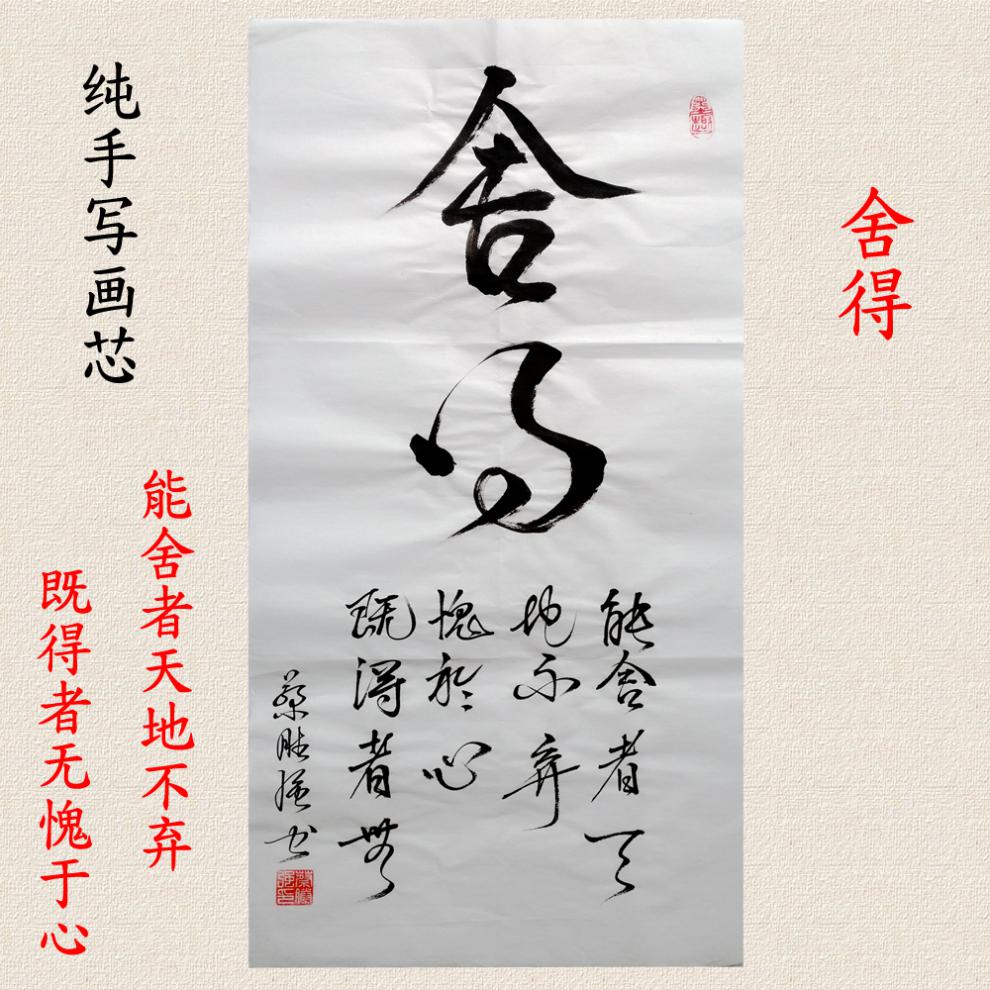 纯手写画芯
舍得
能舍者天地不弃
既得者无愧于心
舍得
能舍者天
地不弃
既得者無
愧於心
蔡胜强书